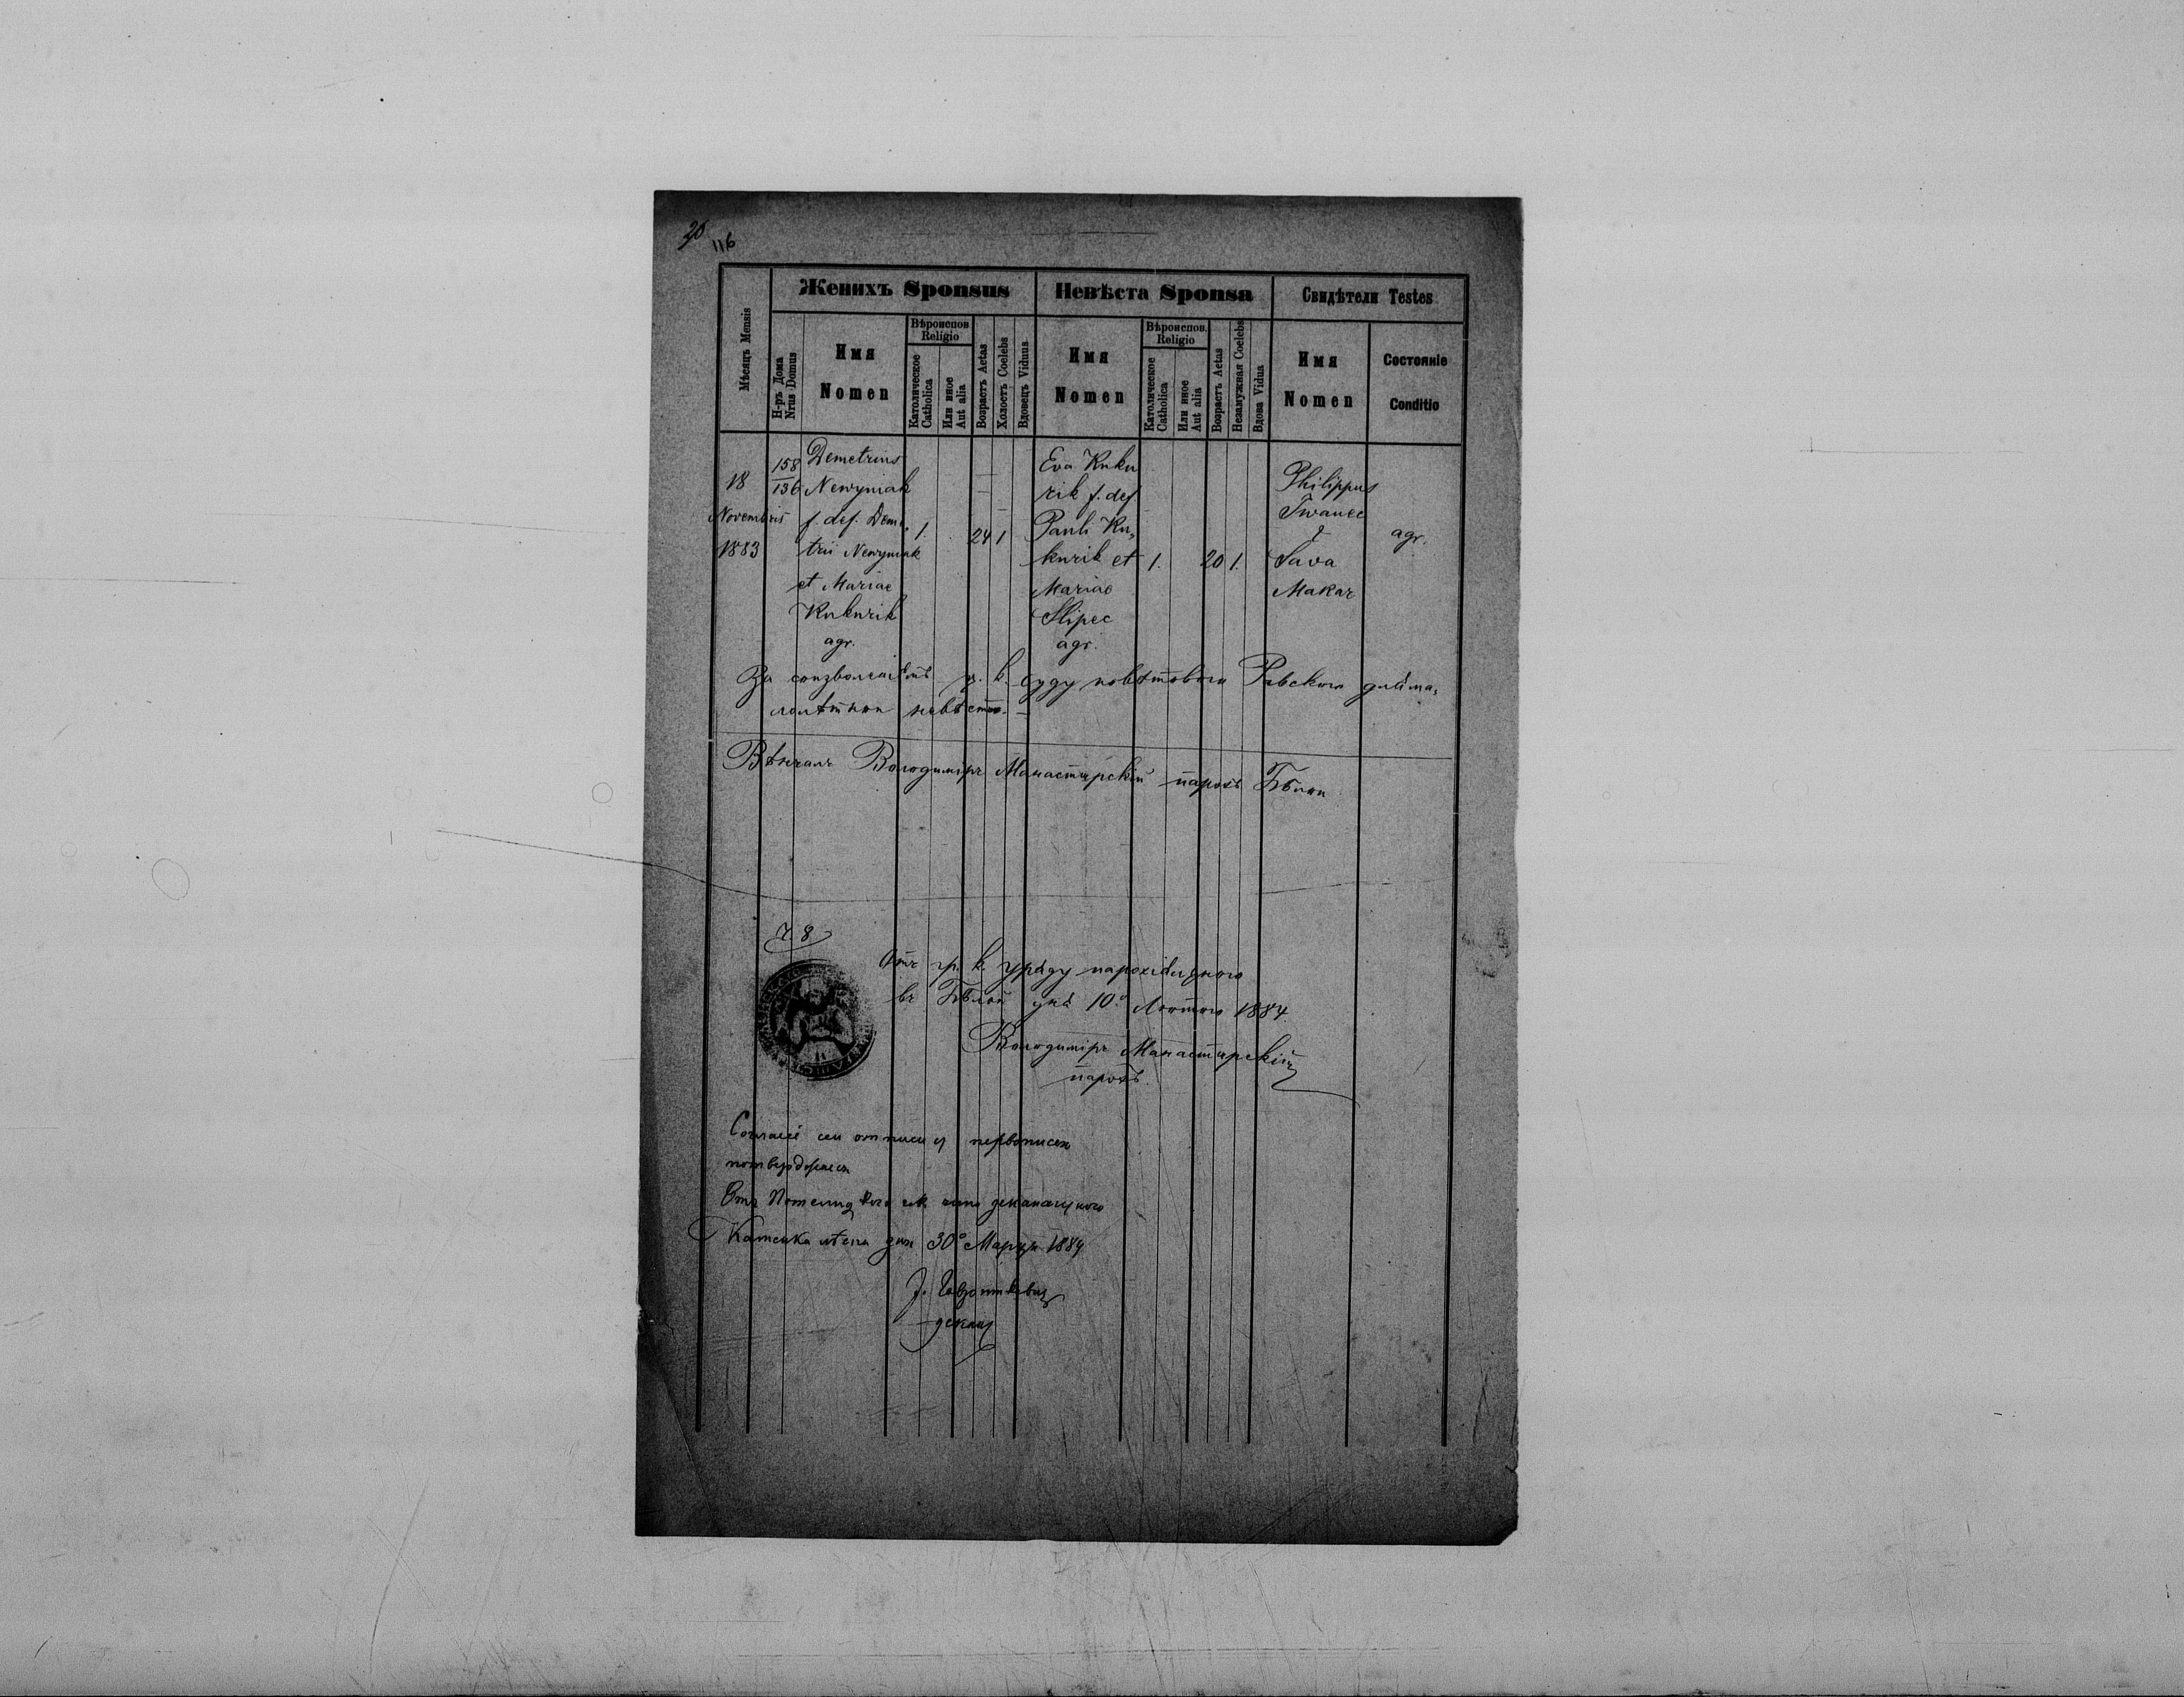 20 116
Женихъ Sponsus
Невѣста Sponsa
Свидѣтели Testes
Мѣсяцъ Mensis
Н-ръ Дома
Nrus Domus
Имя
Nomen
Вѣроиспов
Religio
Католическое
Catholica
Или иное
Aut alia
Возрастъ Aetas
Холостъ Coelebs
Вдовецъ Viduus
Имя
Nomen
Вѣроиспов.
Religio
Католическое
Catholica
Или иное
Aut alia
Возрастъ Aetas
Незамужная Coelebs
Вдова Vidua
Имя
Nomen
Состояніе
Conditio
18
Novembris
1883
158
136
Demetrius
Newyniak
f. def. Deme
trii Newyniak
et Mariae
Kukurik
agr.
1. 24 1
Eva Kuku
rik f. def.
Pauli Ku„
kurik et
Mariae
Slipec
agr.
1. 20 1.
Philippus
Iwanec
&
Sava
Makar
agr.
За ц. к. суду повѣтового Равского для ма„
лолѣтнои невѣсты. —
Вѣнчалъ Володимiръ Манастирскiй парохъ Бѣлои
Ч 8
Отъ гр. к. уряду парохiяльного
въ Бѣлой дня 10º Лютого 1884.
Володимiръ Манастирскiй
парохъ.
сеи отписи съ первописею
потверджаеся
Отъ деканального
Каменка дня 30º Марця 1884
декан